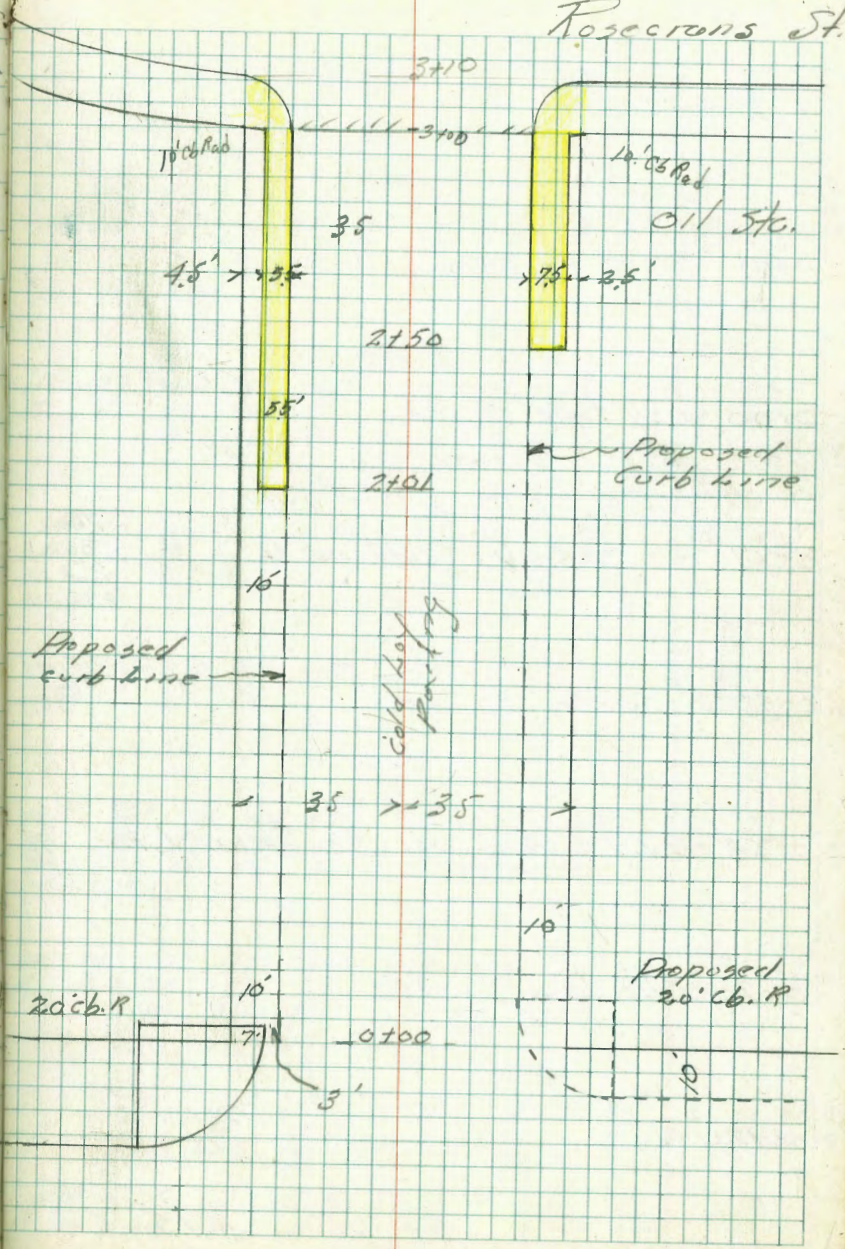 Rosecrans St.
3+10
3+00
10' Cb Rad
10' Cb Rad
Oil Sta.
35
4.5'
5.5
7.5'
2.5'
2+50
5.5'
Proposed
Curb Line
2+01
10'
Proposed
Curb Line
Cold Lay
Paving
35
35
10'
Proposed
20' Cb. R
10'
20' Cb. R
7'
0+00
3'
10'